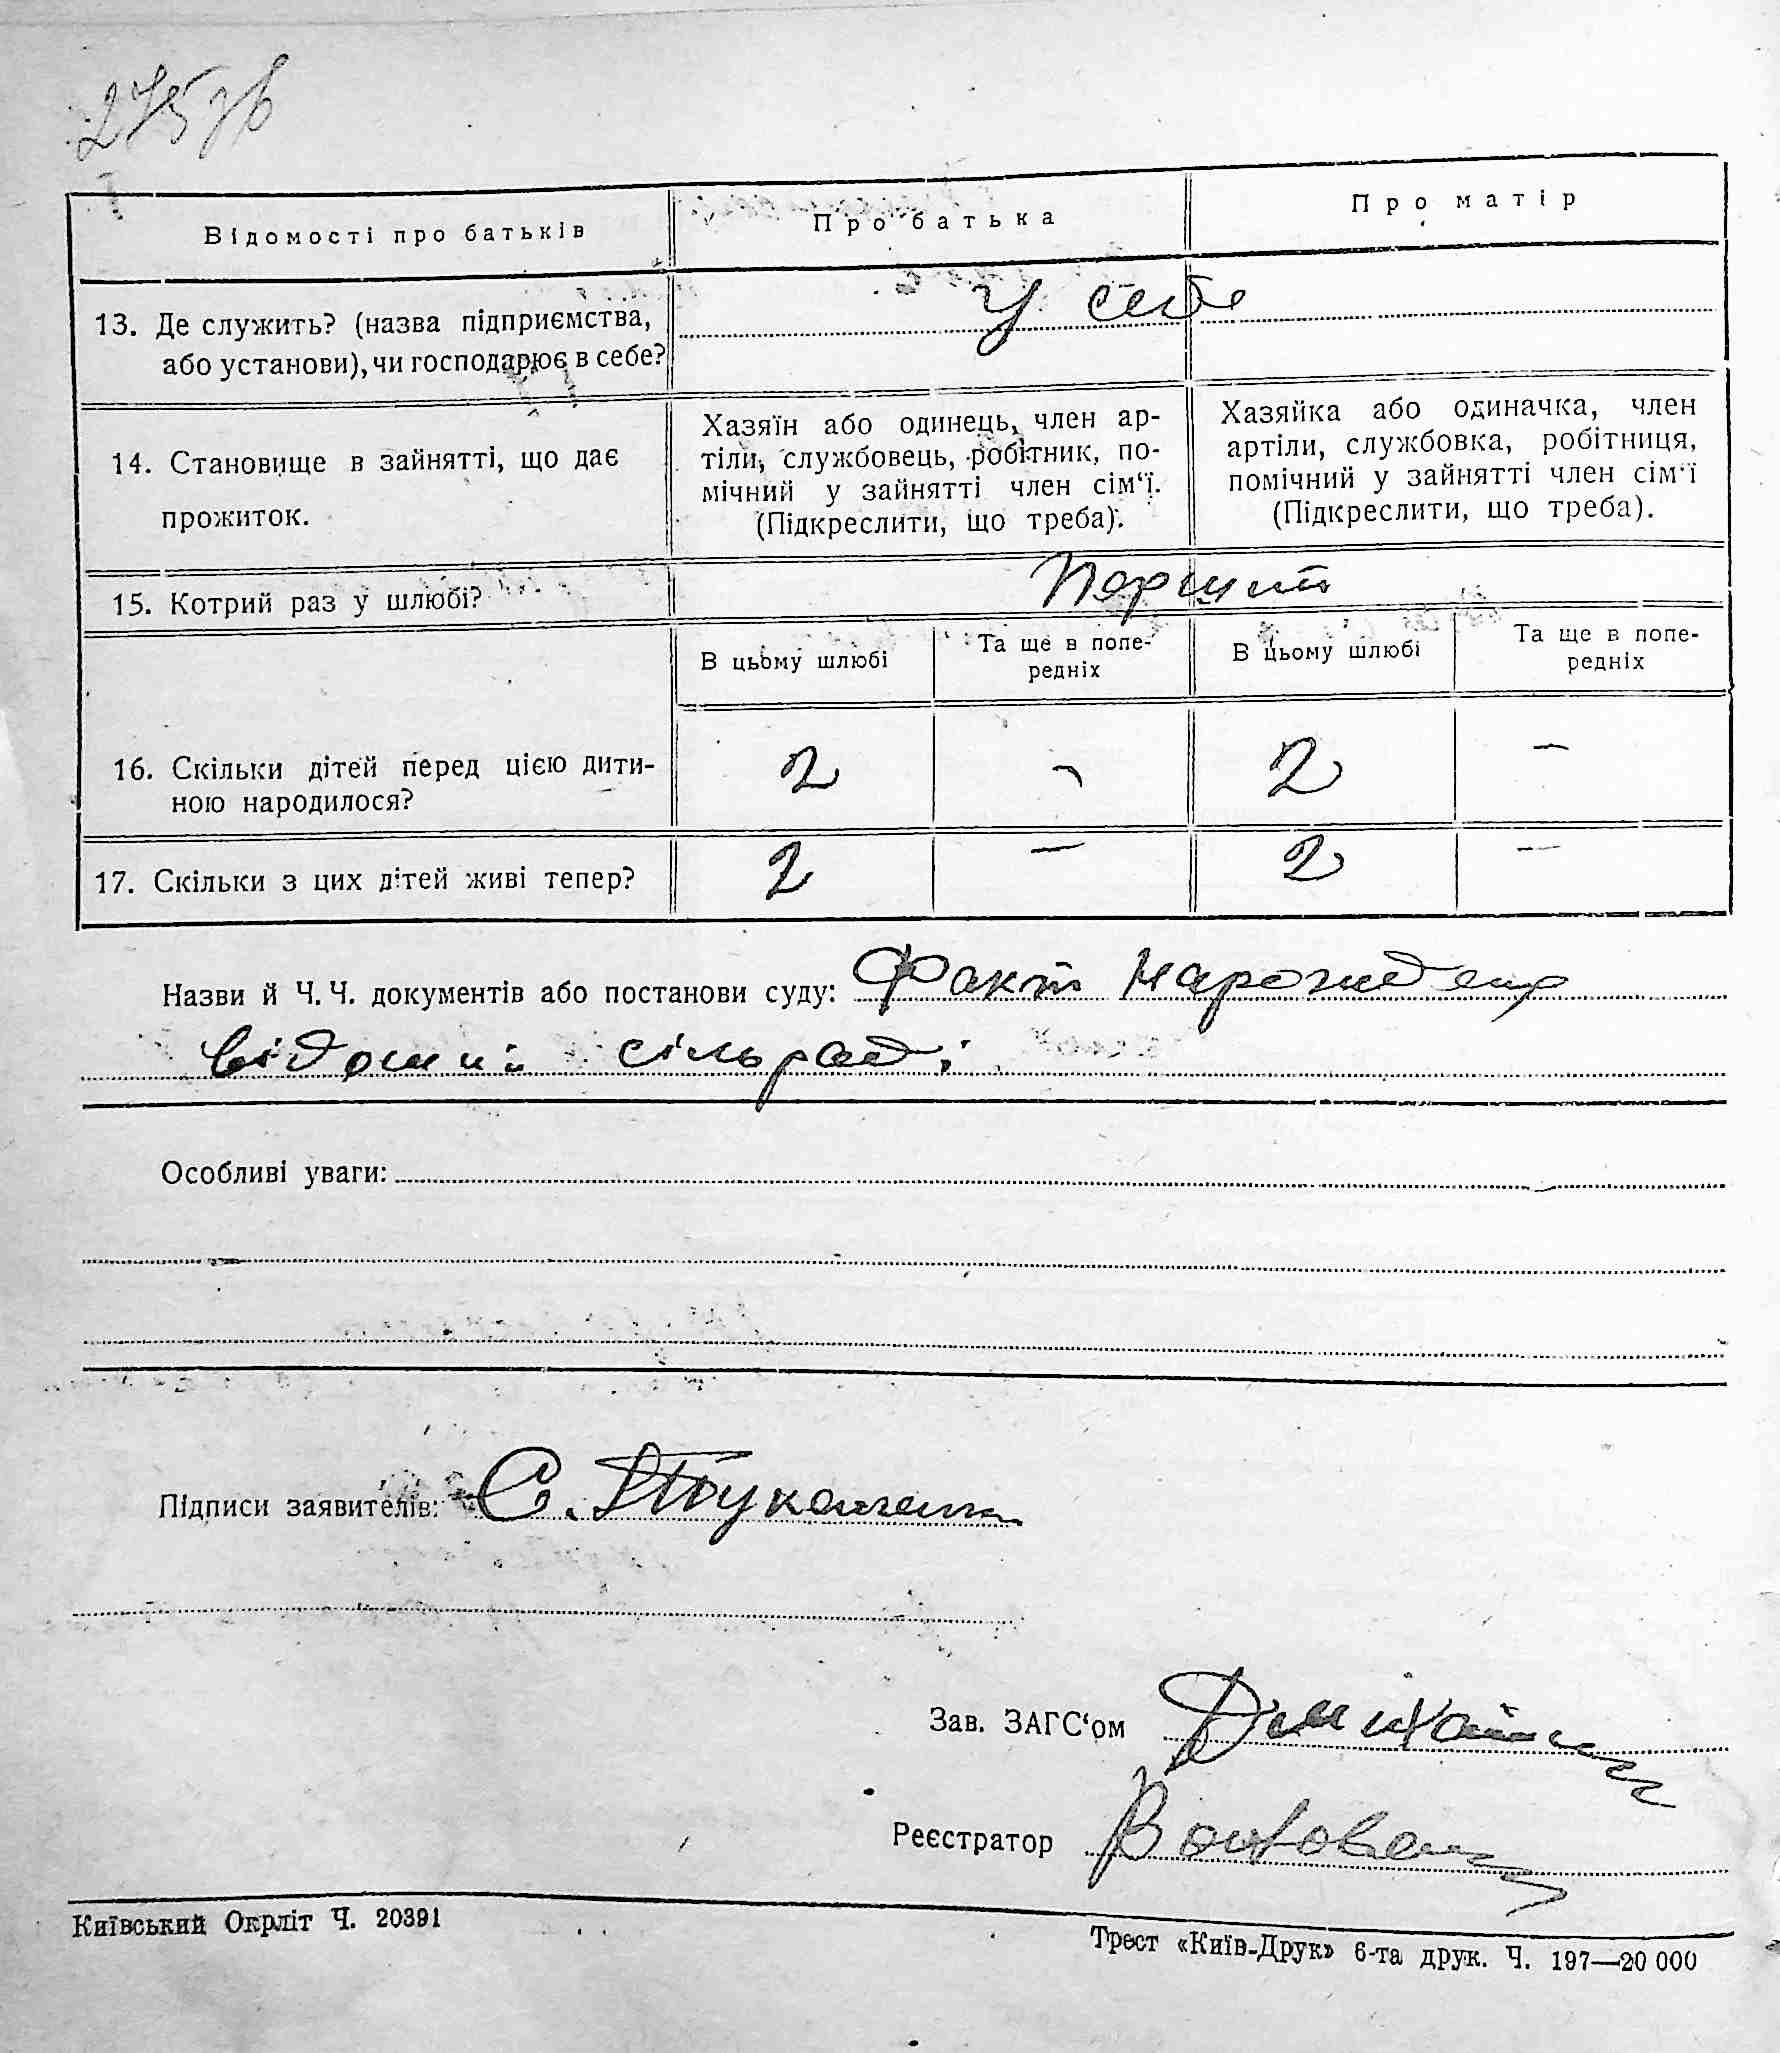 275 зв
Відомості про батьків
Про батька
Про матір
13. Де служить? (назва підприємства,
або установи), чи господарює в себе?
у себе
14. Становище в зайнятті, що дає
прожиток.
Хазяїн або одинець, член ар-
тіли, службовець, робітник, по-
мічний у зайнятті член сім‘ї.
(Підкреслити, що треба).
Хазяйка або одиначка, член
артіли, службовка, робітниця,
помічний у зайнятті член сім‘ї
(Підкреслити, що треба).
15. Котрий раз у шлюбі?
Перший
В цьому шлюбі
Та ще в попе-
редніх
В цьому шлюбі
Та ще в попе-
редніх
16. Скільки дітей перед цією дити-
ною народилося?
2 — 2 —
17. Скільки з цих дітей живі тепер?
2 — 2 —
Назви й Ч. Ч. документів або постанови суду: Факт народження
відомий сільраді
Особливі уваги:
Підписи заявителів: С.
Зав. ЗАГС‘ом
Реєстратор
Київський Окрліт Ч. 20391
Трест «Київ-Друк» 6-та друк. Ч. 197—20 000